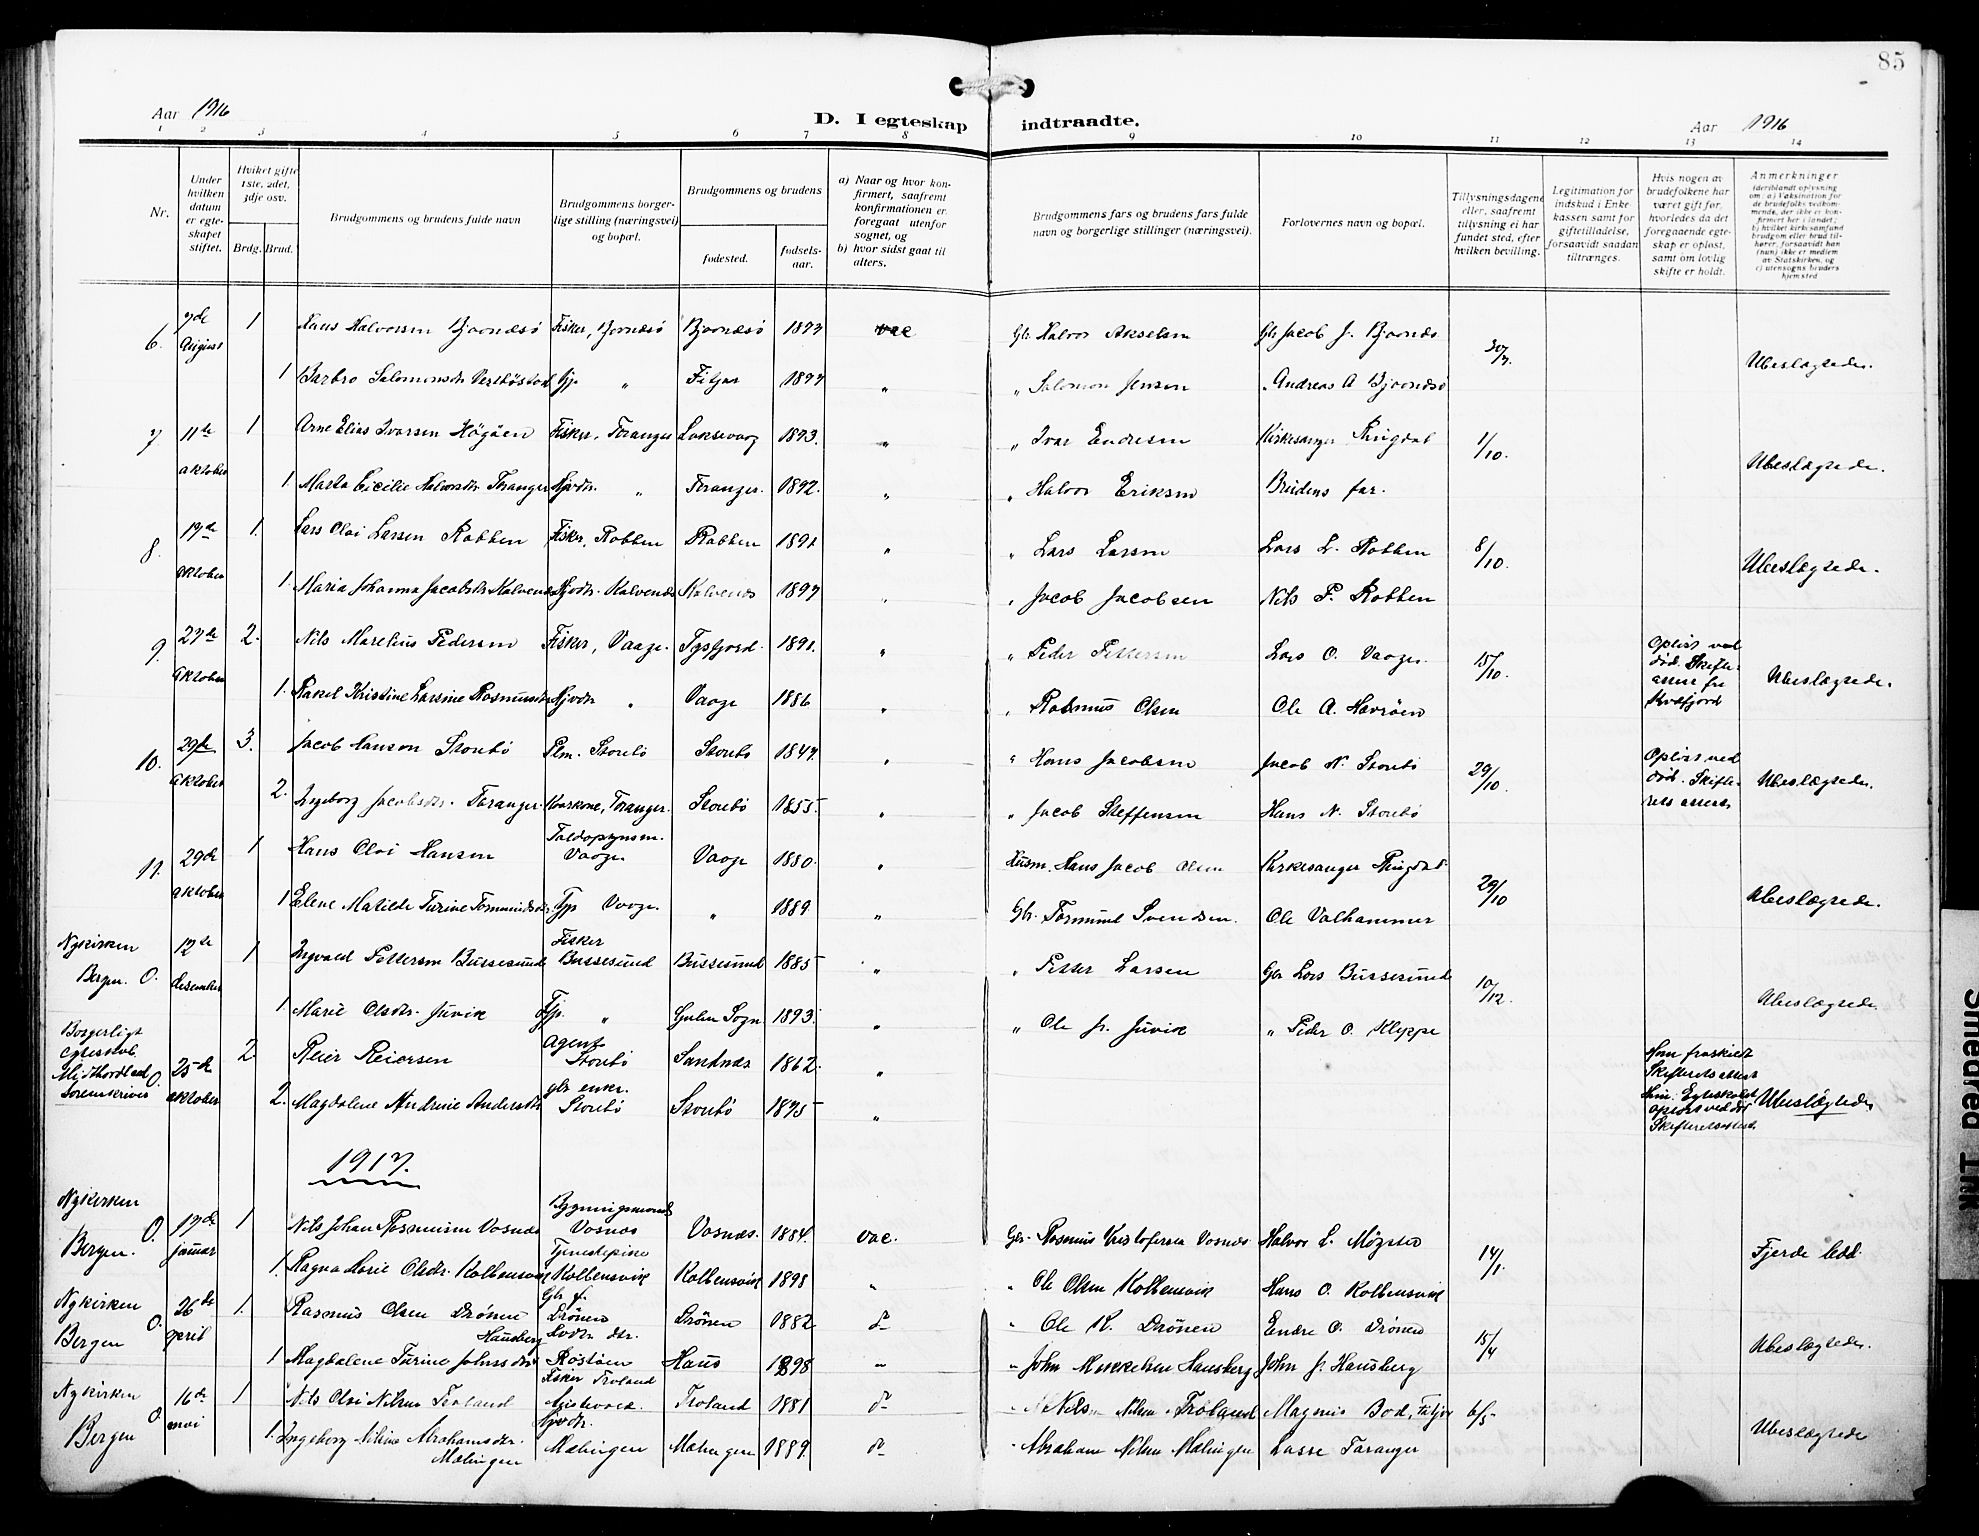 85
Aar 1916
D. I egteskap indtraadte.
Aar 1916
1 2 3 4 5 6 7 8 9 10 11 12 13 14
Nr.
Under hvilken datum er egteskapet stiftet.
Hviket gifte 1ste, 2det, 3dje osv.
Brdg. Brud.
Brudgommens og brudens fulde navn
Brudgommens borgerlige stilling (næringsvei) og bopæl.
Brudgommens og brudens
fødested.
fødselsaar.
a) Naar og hvor konfirmert, saafremt konfirmationen er foregaat utenfor sognet, og
b) hvor sidst gaat til alters.
Brudgommens fars og brudens fars fulde navn og borgerlige stillinger (næringsvei).
Forlovernes navn og bopæl.
Tillysningsdagene eller, saafremt tillysning ei har fundet sted, efter hvilken bevilling.
Legitimation for indskud i Enkekassen samt for giftetilladelse, forsaavidt saadan tiltrænges.
Hvis nogen av brudefolkene har været gift før, hvorledes da det foregaaende egteskap er opløst, samt om lovlig skifte er holdt.
Anmerkninger
(deriblandt oplysning om: a) Vaksination for de brudefolks vedkommende, der ikke er konfirmert her i landet; b) hvilket kirkesamfund brudgom eller brud tilhører, forsaavidt han (hun) ikke er medlem av Statskirken, og c) utensogns bruders hjemsted
6. 7de August 1 Hans Halvorsen Bjornesø Fisker, Bjornesø Bjornesø 1877 vac Gbr Halvor Akselsen Gbr Jacob J. Bjornes 30/7 Ubeslegtede.
1 Barbro Salomonsdr Vestbøstad Tjp „ Fitjar 1877 „ „ Salomon Jensen „ Andreas A Bjornesø
7 11te oktober 1 Arne Elias Ivarsen Høgøen Fisker, Toranger Laksevaag 1893. „ „ Ivar Endresen Kirkesanger Ringdal 1/10. Ubeslegtede.
1 Marta Cicilie Halvorsdr Toranger Hjvdtr. „ Toranger. 1892. „ „ Halvor Eriksen Brudens far.
8. 17de oktober 1. Lars Olai Larsen Robben Fisker, Robben Robben 1891 „ „ Lars Larsen Lars L. Robben 8/10 Ubeslegtede.
1. Maria Johanna Jacobsdr Kalvenes Hjvdtr. Kalvenes Kalvenes 1897 „ „ Jacob Jacobsen Nils P. Robben
9. 27de oktober 2. Nils Marelius Pedersen Fisker, Vaage. Tysfjord. 1891. „ „ Peder Pettersen Lars O. Vaage. 15/10. Opløst ved død. Skifteattest fra Kvæfjord Ubeslegtede.
1. Rakel Kristine Larsine Rasmusdr Hjvdtr „ Vaage 1886 „ „ Rasmus Olsen Ole A. Havrøen
10. 29de oktober 3. Jacob Hansen Storebø Plm. Storebø Storebø 1847. „ „ Hans Jacobsen Jacob N. Storebø 29/10. Opløst ved død. Skifteretsattest Ubeslegtede.
2. Ingeborg Jacobsdr. Toranger. Kaarkone, Toranger. Storebø 1855. „ „ Jacob Steffensen Hans N. Storebø
11. 29de oktober 1 Hans Olai Hansen Toldopsynsm. Vaage Vaage 1880. „ Husm. Hans Jacob Olsen Kirkesanger Ringdal 29/10 Ubeslegtede.
1 Elene Matilde Turine Tormundsdr Tjp Vaage. „ 1889 „ Gbr. Tormund Svendsen. Ole Valhammer
Nykirken Bergen. O. 12te desember 1 Ingvald Pettersen Bussesund Fisker Bussesund Bussesund 1885 „ „ Petter Larsen Gbr Lars Bussesund 10/12. Ubeslegtede
1 Marie Olsdtr. Juvik Tjp. „ Gulen Sogn 1893. „ „ Ole J. Juvik „ Peder O. Kleppe
Borgerligt egteskab. Midthordland Sorenskriver O. 25de oktober 2 Reier Reiersen Agent Storebø Sandnes 1862. „ Ham fraskilt Skifteretsattest
2. Magdalene Andrine Andersdtr gbr enke. Storebø Storebø 1875 „ Hun. Egteskabet opløst ved død Skifteretsattest. Ubeslegtede
1917.
Nykirken Bergen. O. 17de januar 1 Nils Johan Rasmussen Vosnes Bygningsmand Vosnes Vosnes. 1884. vac. Gbr. Rasmus Kristofersen Vosnes. Halvor L. Møgster 14/1. Fjerde ledd.
1. Ragna Marie Olsdtr. Kolbensvik Tjenestepike Kolbensvik Kolbensvik 1898 „ „ Ole Olsen Kolbensvik Hans O. Kolbensvik
Nykirken Bergen O. 26de april 1. Rasmus Olsen Drønen Gbr. f. Drønen Drønen 1882 do „ Ole K. Drønen Endre O. Drønen 15/4 Ubeslegtede.
1 Magdalene Turine Johnsdtr Hausberg Røstøen Haus 1898 „ „ John Mikkelsen Hausberg John J. Hausberg
Nykirken Bergen O. 16de mai 1 Nils Olai Nilsen Troland Fisker Troland Austevold. Troland 1881 do „ Nils Nilsen Troland Magnus Bod, Fitjar 6/5 Ubeslegtede
1. Ingeborg Nikine Abrahamsdtr. Mælingen Hjvdtr. Mælingen Mælingen 1889. do „ Abraham Nilsen Mælingen Lasse Taranger
Smedred Ink